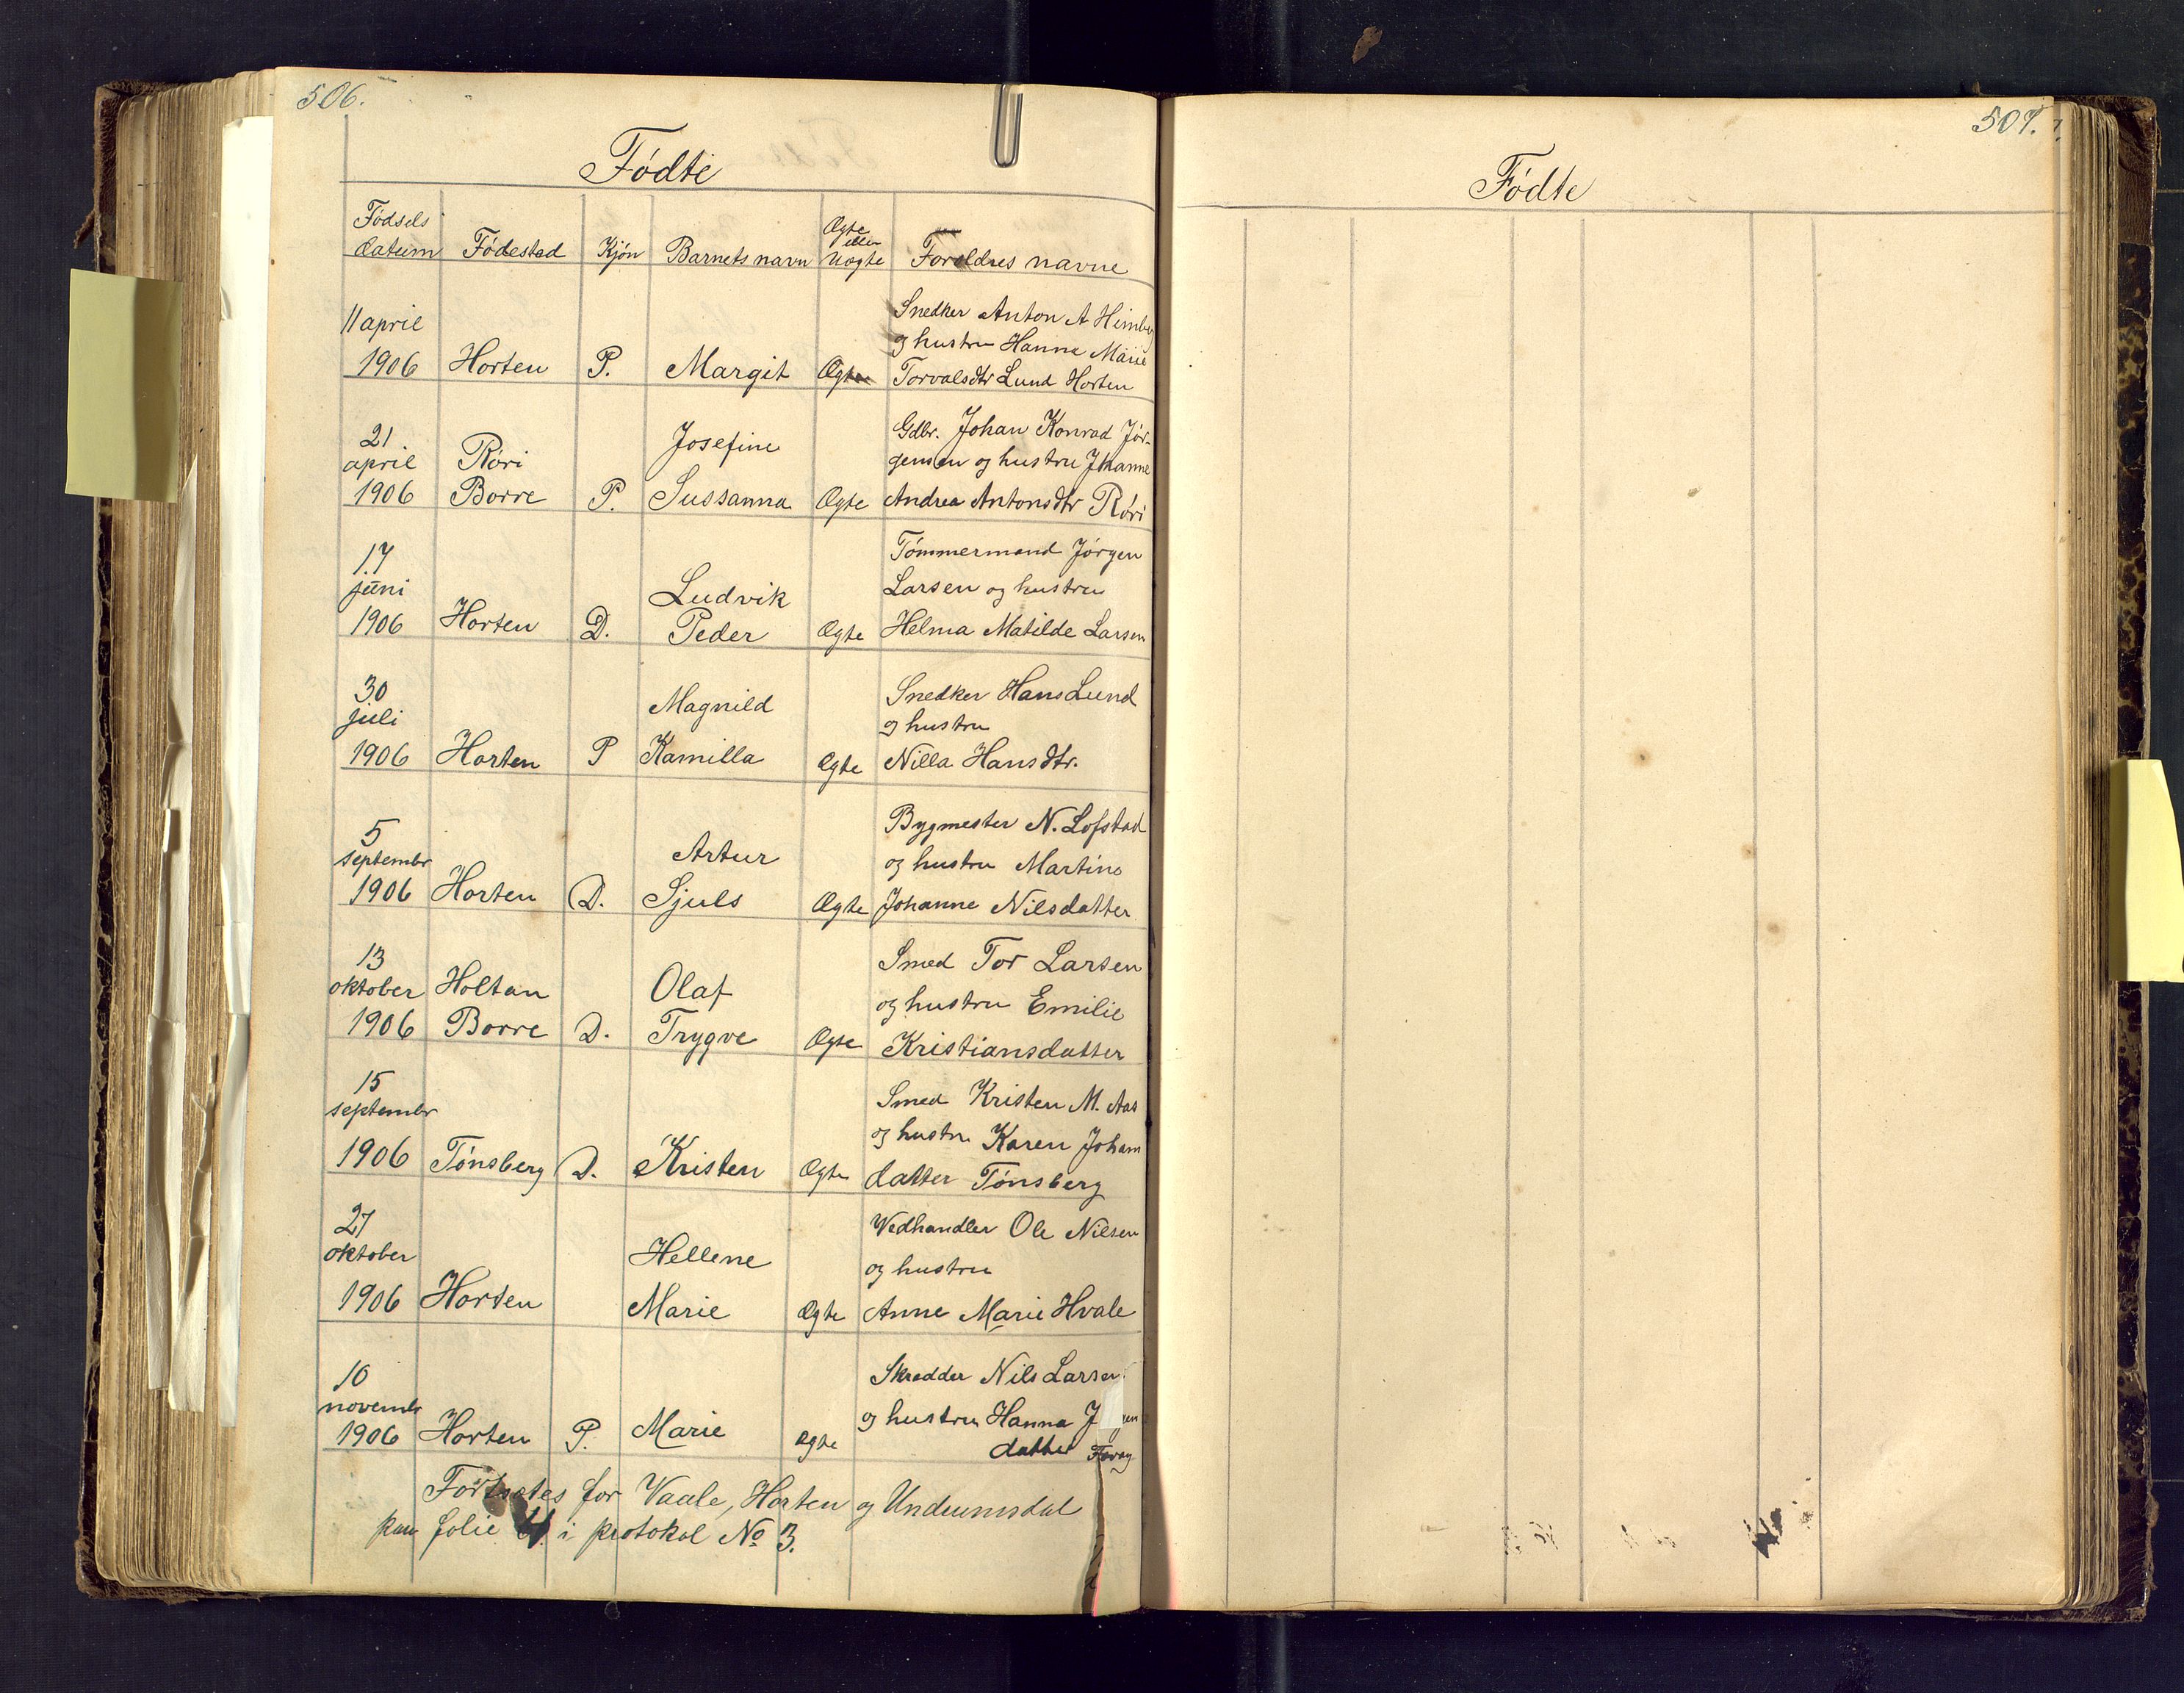 506.
Fødte
Fødsels datum Fødested Kjøn Barnets navn Ægte eller Uægte Foreldres navne
11 april Snedker Anton A Himberg
og hustru Hanna Marie
1906 Horten P. Margit Ægte Torvalsdtr Lund Horten
21 Josefine Gdbr. Johan Konrad Jør-
april Røri gensen og hustru Jhanne
1906 Borre P. Sussanna Ægte Andrea Antonsdtr Røri
17 Tømmermand Jørgen
juni Ludvik Larsen og hustru
1906 Horten D. Peder Ægte Helma Matilde Larsen
30 Magnild Snedker Hans Lund
juli og hustru
1906 Horten P Kamilla Ægte Nilla Hansdtr.
5 Bygmester N. Lofstad
septembr Artur og hustru Martine
1906 Horten D. Sjuls Ægte Johanne Nilsdatter
13 Smed Tor Larsen
oktober Holtan Olaf og hustru Emilie
1906 Borre D. Trygve Ægte Kristiansdatter
15 Smed Kristen M. Aas
septembr og hustru Karen Joham
1906 Tønsberg D. Kristen Ægte datter Tønsberg
27 Vedhandler Ole Nilsen
oktober Hellene og hustru
1906 Horten Marie Ægte Anne Marie Hvale
10 Skredder Nils Larsen
novembr og hustru Hanna
1906 Horten P. Marie Ægte datter
Fortsetes for Vaale, Horten og Undrumsdal
paa folie i protokol No 3.
507.
Fødte